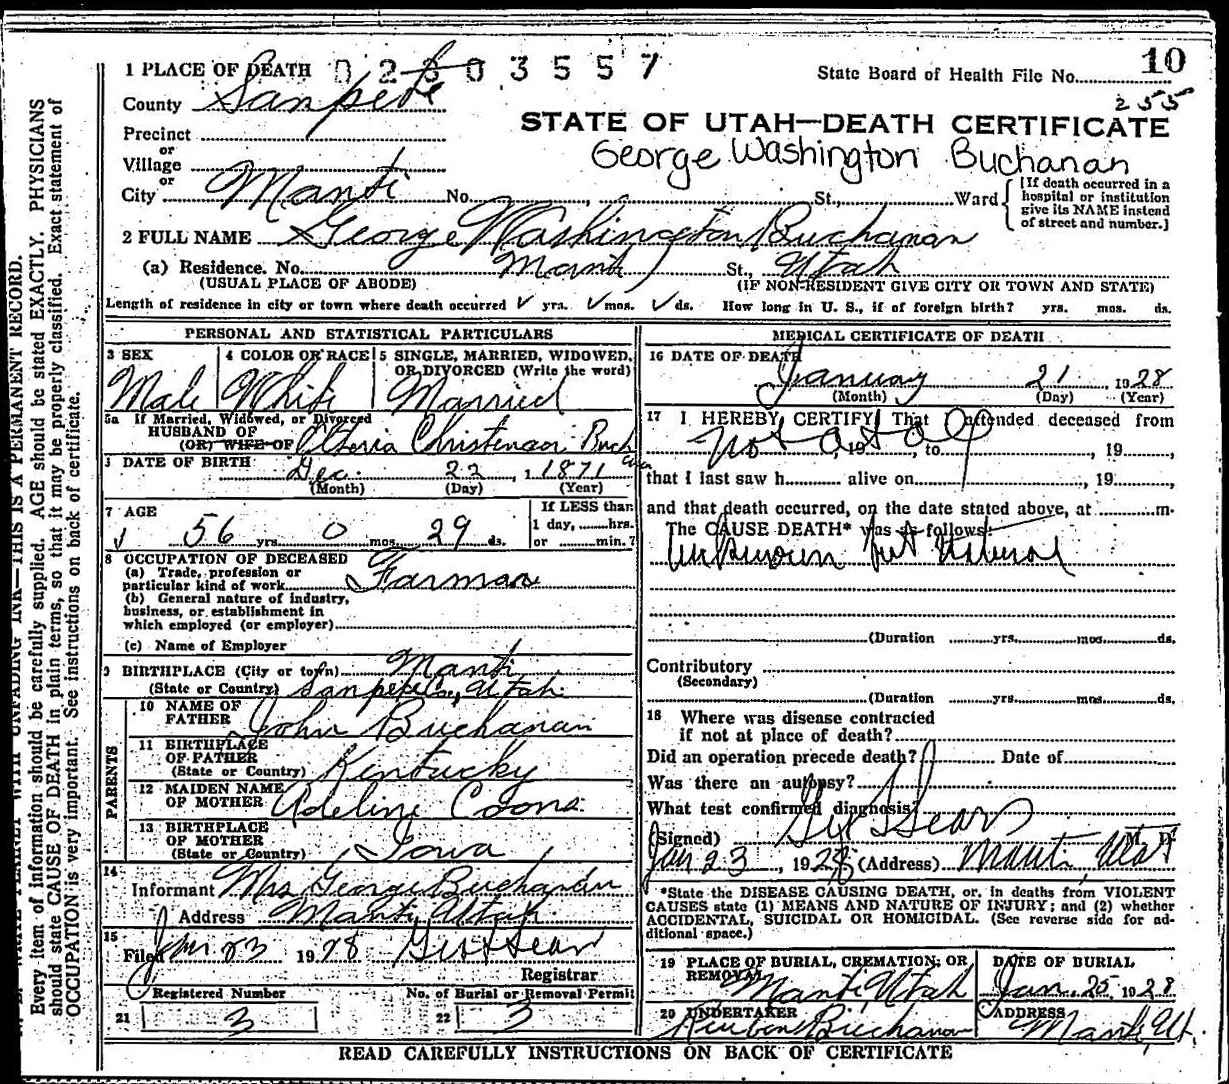 1 PLACE OF DEATH 0 2 6 0 3 5 5 7
State Board of Health File No. 10
255
County Sanpete
STATE OF UTAH—DEATH CERTIFICATE
George Washington Buchanan
Precinct
or
Village
or
City Manti No. , St., Ward
[If death occurred in a
hospital or institution
give its NAME instead
of street and number.]
2 FULL NAME George Washington Buchanan
(a) Residence. No. Manti St., Utah
(USUAL PLACE OF ABODE) (IF NON-RESIDENT GIVE CITY OR TOWN AND STATE)
Length of residence in city or town where death occurred ✓ yrs. ✓ mos. ✓ ds. How long in U. S., if of foreign birth? yrs. mos. ds.
PERSONAL AND STATISTICAL PARTICULARS
3 SEX
Male
4 COLOR OR RACE
White
5 SINGLE, MARRIED, WIDOWED,
OR DIVORCED (Write the word)
Married
5a If Married, Widowed, or Divorced
HUSBAND OF
(OR) WIFE OF Christensen Buchanan
DATE OF BIRTH Dec. 22, 1871
(Month) (Day) (Year)
7 AGE
56 yrs. 0 mos. 29 ds.
If LESS than
1 day, hrs.
or min.?
8 OCCUPATION OF DECEASED
(a) Trade, profession or
particular kind of work Farmer
(b) General nature of industry,
business, or establishment in
which employed (or employer)
(c) Name of Employer
9 BIRTHPLACE (City or town) Manti
(State or Country) Sanpete Co., Utah.
PARENTS
10 NAME OF
FATHER John Buchanan
11 BIRTHPLACE
OF FATHER
(State or Country) Kentucky
12 MAIDEN NAME
OF MOTHER Adeline Coons.
13 BIRTHPLACE
OF MOTHER
(State or Country) Iowa
14
Informant Mrs George Buchanan
Address Manti, Utah.
15
Filed Jan 23 1928 Geo Sears
Registrar
Registered Number
21 3
No. of Burial or Removal Permit
22 3
MEDICAL CERTIFICATE OF DEATH
16 DATE OF DEATH
January 21, 1928
(Month) (Day) (Year)
17 I HEREBY CERTIFY, That I attended deceased from
not at all , 19 , to , 19 ,
that I last saw h alive on , 19 ,
and that death occurred, on the date stated above, at m.
The CAUSE DEATH* was as follows:
Unknown but Natural
(Duration yrs. mos. ds.
Contributory
(Secondary)
(Duration yrs. mos. ds.
18 Where was disease contracted
if not at place of death?
Did an operation precede death? Date of
Was there an autopsy?
What test confirmed diagnosis?
(Signed) Geo Sears
Jan 23, 1928 (Address) Manti, Utah
*State the DISEASE CAUSING DEATH, or, in deaths from VIOLENT
CAUSES state (1) MEANS AND NATURE OF INJURY; and (2) whether
ACCIDENTAL, SUICIDAL OR HOMICIDAL. (See reverse side for ad-
ditional space.)
19 PLACE OF BURIAL, CREMATION, OR
REMOVAL
Manti, Utah
DATE OF BURIAL
Jan. 25, 1928
20 UNDERTAKER
Reuben Buchanan
ADDRESS
Manti, Ut.
READ CAREFULLY INSTRUCTIONS ON BACK OF CERTIFICATE
WITH UNFADING INK—THIS IS A PERMANENT RECORD.
Every item of information should be carefully supplied. AGE should be stated EXACTLY. PHYSICIANS
should state CAUSE OF DEATH in plain terms, so that it may be properly classified. Exact statement of
OCCUPATION is very important. See instructions on back of certificate.